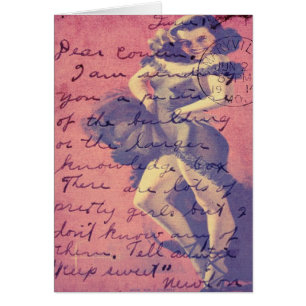 June
Dear Cousin.
I am sending
you a picture
of the building
or the larger
knowledge box
There are lots of
pretty girls but I
don't know any of
them. Tell
"Keep sweet"
Newton
JUN 2
M
19
MO.